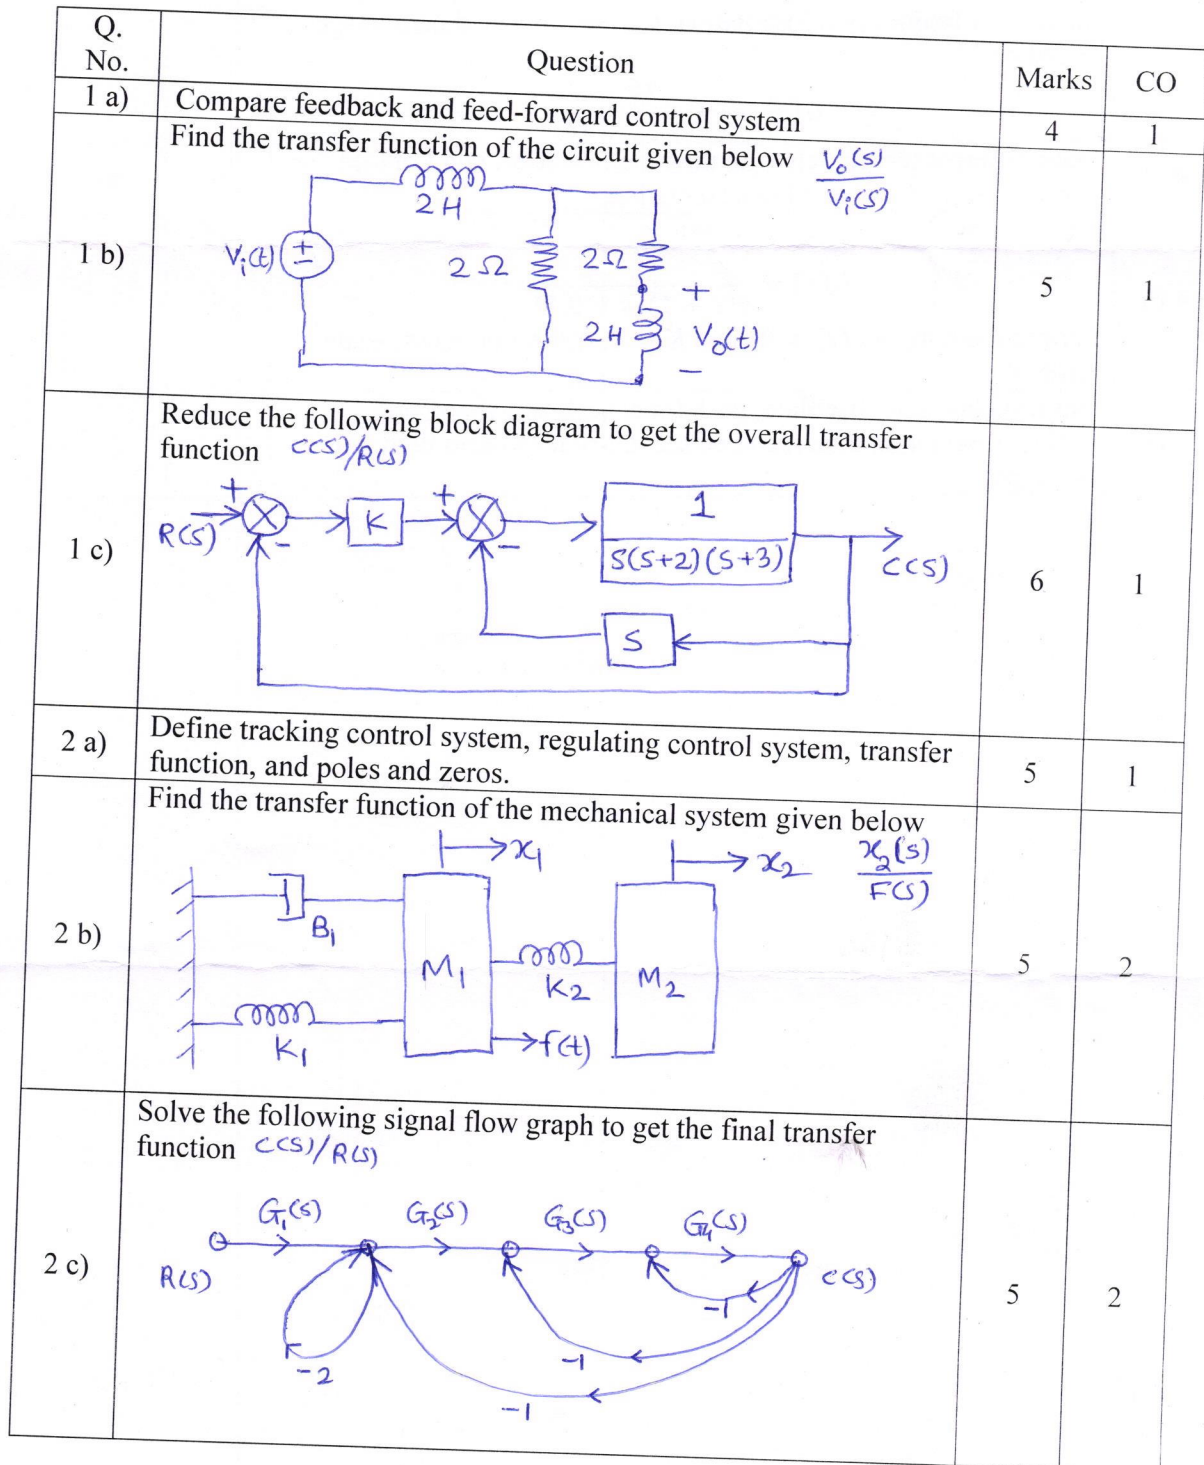 Q.
No.
Question
Marks
CO
1 a)
Compare feedback and feed-forward control system
4
1
1 b)
Find the transfer function of the circuit given below V₀(s)
Vᵢ(s)
2H
Vᵢ(t)
+
2Ω
2Ω
+
2H
V₀(t)
−
5
1
1 c)
Reduce the following block diagram to get the overall transfer
function C(S)/R(S)
+
R(S)
−
K
+
−
1
S(S+2)(S+3)
C(S)
S
6
1
2 a)
Define tracking control system, regulating control system, transfer
function, and poles and zeros.
5
1
2 b)
Find the transfer function of the mechanical system given below
x₁
x₂
x₂(s)
F(S)
B₁
M₁
K₂
M₂
K₁
f(t)
5
2
2 c)
Solve the following signal flow graph to get the final transfer
function C(S)/R(S)
G₁(S)
G₂(S)
G₃(S)
G₄(S)
R(S)
C(S)
-1
-1
-2
-1
5
2